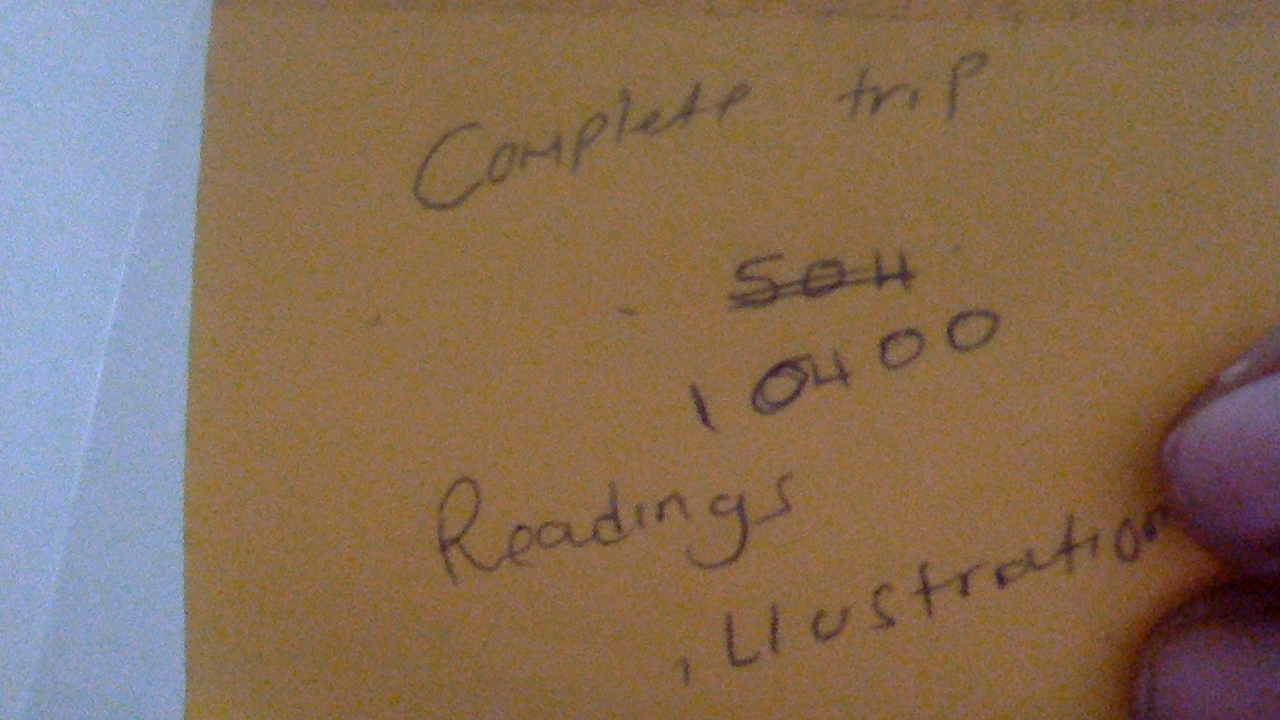 Complete trip
504
10400
Readings
, Illustration